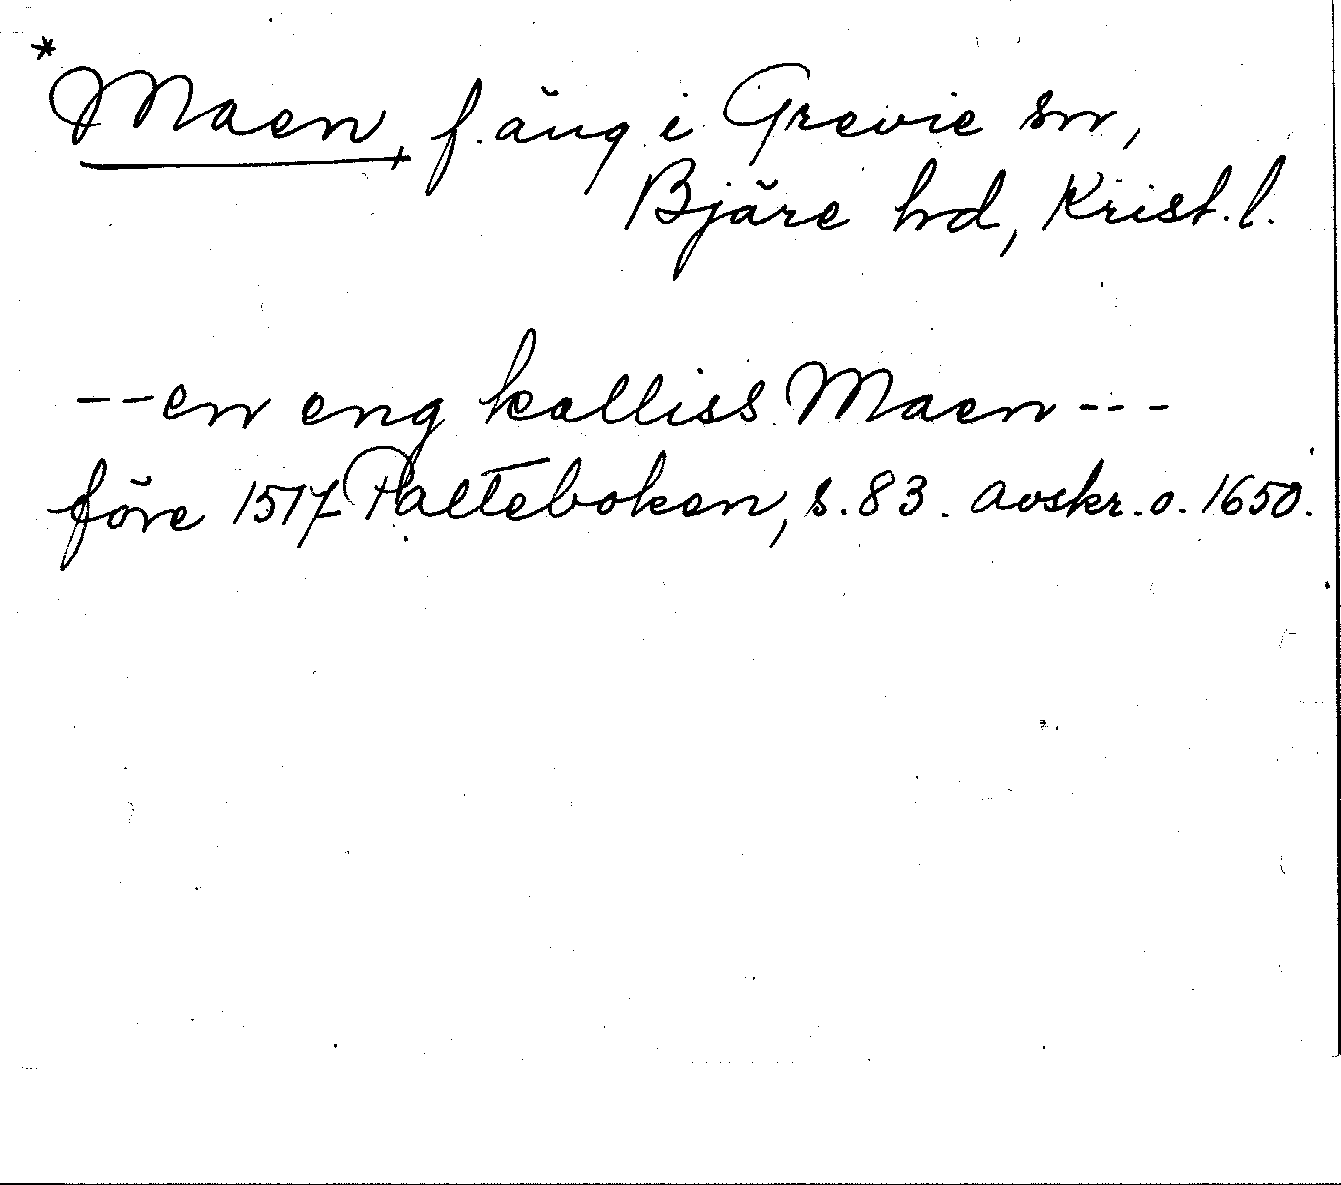 *Maen, f. äng i Grevie sn,
Bjäre hd, Krist. l.
--en eng kalliss Maen---
före 1517 Palteboken, s. 83. avskr. o. 1650.